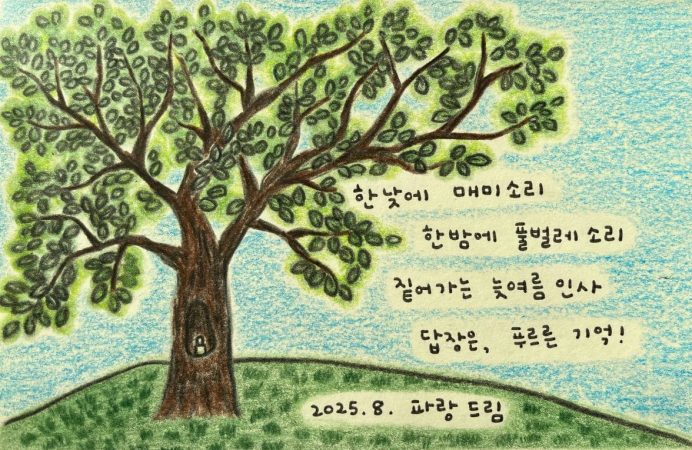 한낮에 매미소리
한밤에 풀벌레 소리
짙어가는 늦여름 인사
답장은, 푸르른 기억!
2025.8. 파랑 드림